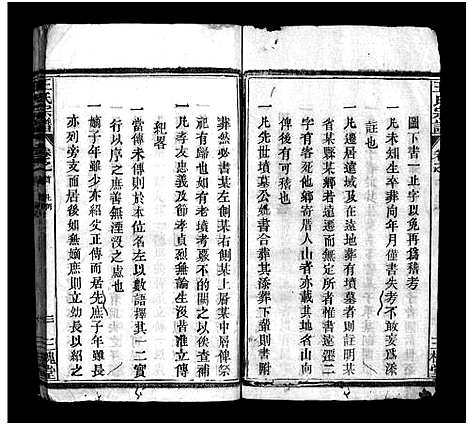 王氏宗譜
圖下書一止字以免再爲稽考
一凡未知生卒葬向年月僅書失考不敢妄爲添
註也
一凡遷居遠域及在遠地葬有墳墓者則註明某
省某縣某鄉若遠遷而無定所者惟書遠徑二
字有死者乏他鄉寄厝人山者亦載其地省山向
俾後有可稽也
一凡先世墳墓公媲書合葬其添葬下輩則書附
葬然必書某左側某右側某上層某中層俾祭
祀有歸也如有老墳考綦不的闕之以俟查補
一凡孝友忠義及節孝貞烈無論生沒者准立傳
紀畧
一當傳未傳則於本位名左以數語擇其一二實
行以序之庶善無湮沒之虞也
一嫡子年雖少亦紹父正傳而居先庶子年雖長
亦列旁支而居後如無嫡庶則立幼長以紹之
王氏宗譜
三
三槐堂
三槐堂